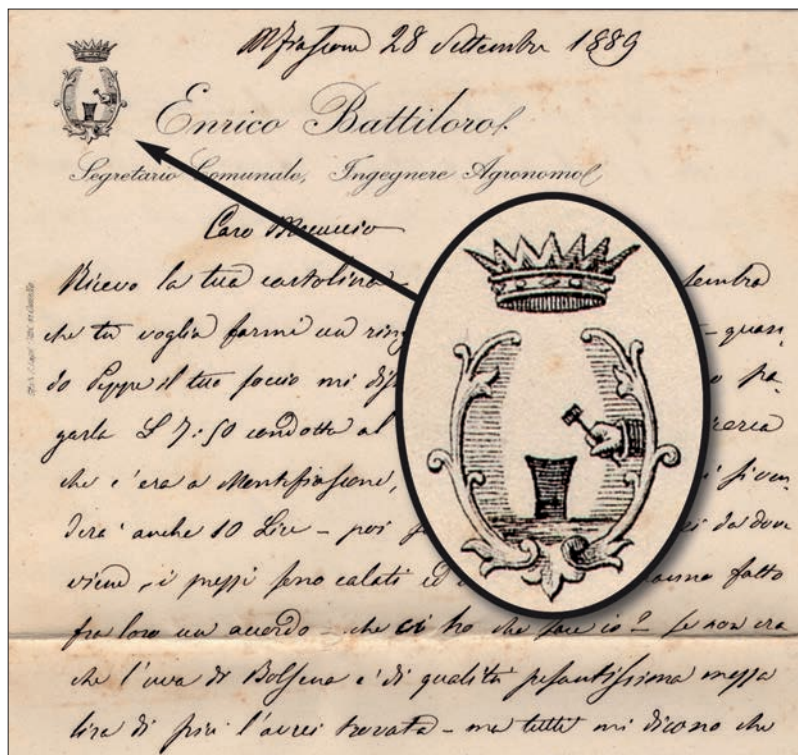 28 Settembre 1889
Enrico Battiloro
Segretario Comunale, Ingegnere Agronomo
Caro
Ricevo la tua cartolina tembra
che tu voglia farmi un ring quan,
do Peppe il tuo soccio mi dis o pa,
garla £ 7:50 condotta al
che c'era a Montefiascone, i siven,
derà anche 10 Lire - poi da dove
viene, i prezzi sono calati ed anno fatto
fra loro un accordo - che ci ho che fare io? se non era
che l'uva di Bolsena è di qualità pesantissima mezza
lira di più l'avrei trovata - ma tutti mi dicono che